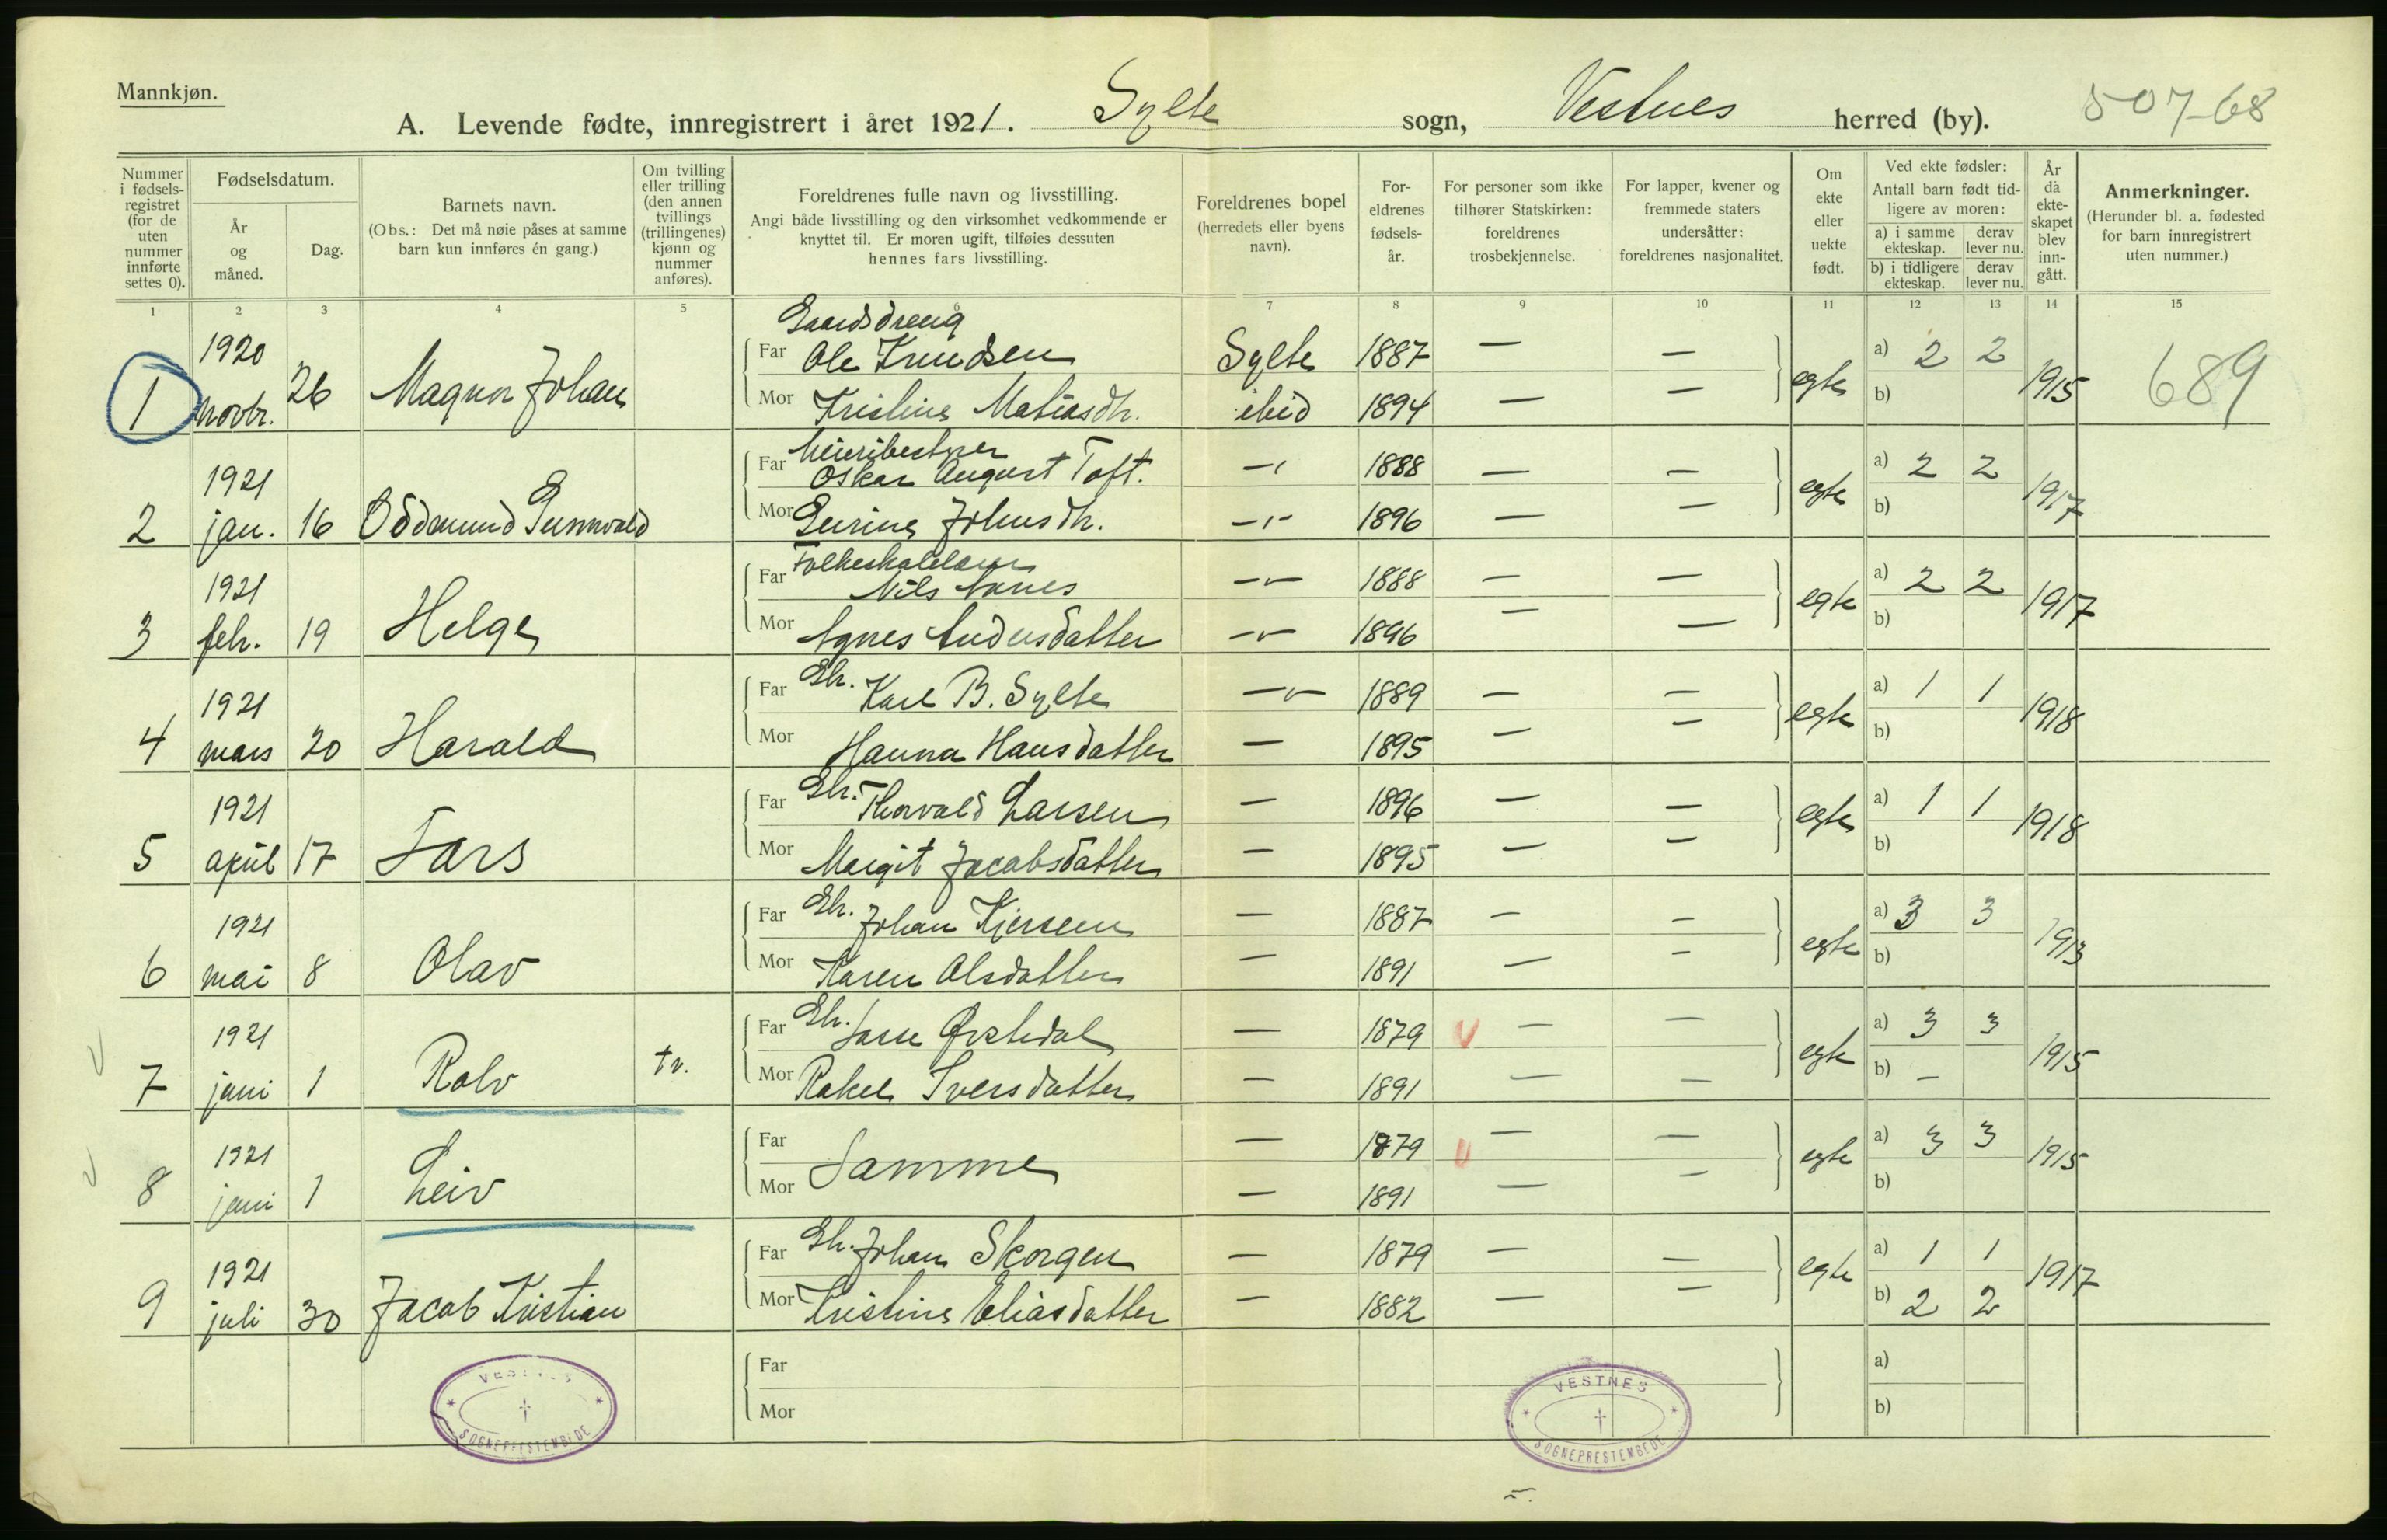 Mannkjøn.
A. Levende fødte, innregistrert i året 1921. Sylte sogn, Vestnes herred (by). 507-68
Nummer i fødselsregistret (for de uten nummer innførte settes 0).
Fødselsdatum.
År og måned.
Dag.
Barnets navn.
(Obs.: Det må nøie påses at samme barn kun innføres én gang.)
Om tvilling eller trilling (den annen tvillings (trillingenes) kjønn og nummer anføres).
Foreldrenes fulle navn og livsstilling.
Angi både livsstilling og den virksomhet vedkommende er knyttet til. Er moren ugift, tilføies dessuten hennes fars livsstilling.
Foreldrenes bopel (herredets eller byens navn).
Foreldrenes fødselsår.
For personer som ikke tilhører Statskirken: foreldrenes trosbekjennelse.
For lapper, kvener og fremmede staters undersåtter: foreldrenes nasjonalitet.
Om ekte eller uekte født.
Ved ekte fødsler:
Antall barn født tidligere av moren:
a) i samme ekteskap. derav lever nu.
b) i tidligere ekteskap. derav lever nu.
År då ekteskapet blev inngått.
Anmerkninger.
(Herunder bl. a. fødested for barn innregistrert uten nummer.)
1 2 3 4 5 6 7 8 9 10 11 12 13 14 15
1 1920 novbr. 26 Magnor Johan
Gaardsdreng
Far Ole Knudsen Sylte 1887 — —
Mor Kristine Matiasdtr. ibid 1894 — —
egte a) 2 2 b) 1915 689
2 1921 jan. 16 Oddmund Gunnvald
Meieribestyrer
Far Oskar August Toft. —„— 1888 — —
Mor Gurine Johnsdtr. —„— 1896 — —
egte a) 2 2 b) 1917
3 1921 febr. 19 Helge
Folkeskolelærer
Far Nils —„— 1888 — —
Mor Agnes Andersdatter —„— 1896 — —
egte a) 2 2 b) 1917
4 1921 mars 20 Harald
Far Gbr. Karl B. Sylte —„— 1889 — —
Mor Hanna Hansdatter — 1895 — —
egte a) 1 1 b) 1918
5 1921 april 17 Lars
Far Gbr. Thorvald Larsen — 1896 — —
Mor Margit Jacobsdatter — 1895 — —
egte a) 1 1 b) 1918
6 1921 mai 8 Olav
Far Gbr. Johan Kjersem — 1887 — —
Mor Karen Olsdatter — 1891 — —
egte a) 3 3 b) 1913
7 1921 juni 1 Rolv tv.
Far Gbr. Lasse Ørstedal — 1879 v — —
Mor Rakel Iversdatter — 1891 — —
egte a) 3 3 b) — 1915
8 1921 juni 1 Leiv
Far Samme — 1879 v — —
Mor — 1891 — —
egte a) 3 3 b) 1915
9 1921 juli 30 Jacob Kristian
Far Gbr. Johan Skorgen — 1879 — —
Mor Kristine Eliasdatter — 1882 — —
egte a) 1 1 b) 2 2 1917
Far a)
Mor b)
VESTNES SOGNEPRESTEMBEDE
VESTNES SOGNEPRESTEMBEDE